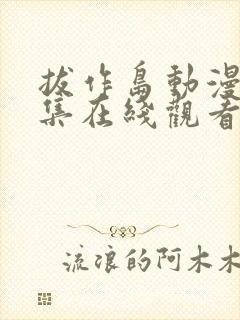 拔作島動漫
集在綫觀看
流浪的阿木木